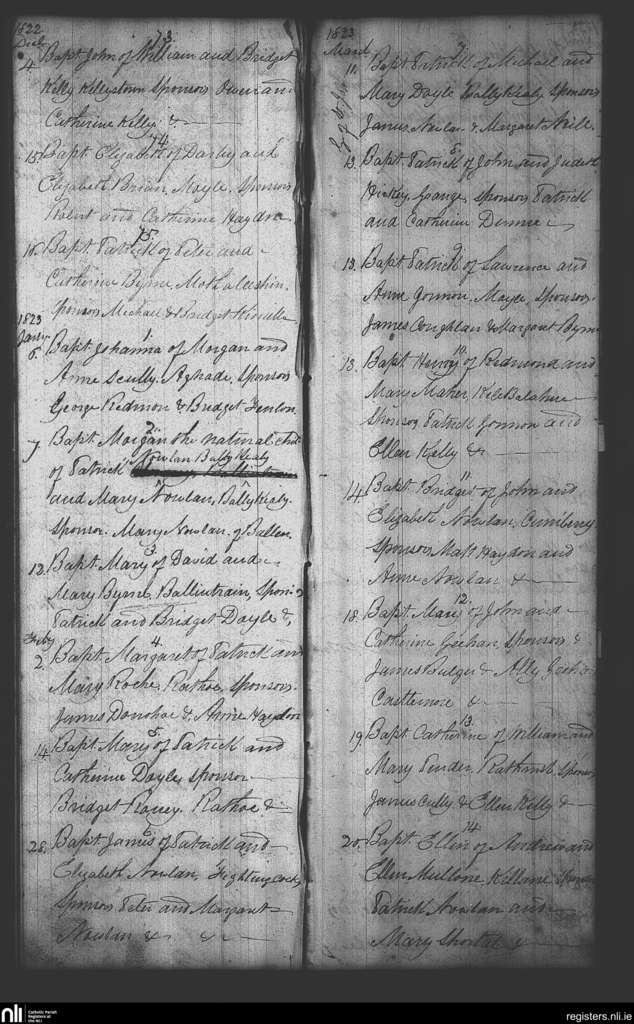 1822
Decbr 73
4 Bapt John of William and Bridget
Kelly Kellystown Sponsors Owen and
Catherine Kelly &
74
15 Bapt Elizabeth of Darby and
Elizabeth Brian, Moyle, Sponsors
Robert and Catherine Haydon
75
16. Bapt. Patrick of Peter and
Catherine Byrne
Sponsors Michael & Bridget Kinsella
1823
Janry 1
6. Bapt Johanna of Morgan and
Anne Scully. Aghade. Sponsors
George Redmon & Bridget Fenlon
2
7 Bapt Morgan the natural child
of Patrick Nowlan Ballykealy
and Mary Nowlan, Ballykealy.
Sponsor. Mary Nowlan, of Ballon
3
12. Bapt Mary of David and
Mary Byrne, Ballintrain, Sponsors
Patrick and Bridget Doyle &,
Feby 4
2. Bapt. Margaret of Patrick and
Mary Roche, Rathoe, Sponsors.
James Donohoe & Anne Haydon
5
14. Bapt Mary of Patrick and
Catherine Doyle, Sponsor
Bridget Rathoe &
6
25. Bapt James of Patrick and
Elizabeth Nowlan, Fightingcocks
Sponsors Peter and Margaret
Nowlan & &
1823
March 7
11. Bapt Patrick of Michael and
Mary Doyle Ballykealy Sponsors
James Nowlan & Margaret Neill.
8
13. Bapt Patrick of John and Judeth
Grange, Sponsors Patrick
and Catherine
9
13. Bapt Patrick of Lawrence and
Anne Gormon, Moyle, Sponsors.
James Coughlan & Margaret Byrne
10
13. Bapt Henry of Redmond and
Mary Maher, Kilbalahue
Sponsors Patrick Gormon and
Ellen Kelly &
11
14. Bapt Bridget of John and
Elizabeth Nowlan,
Sponsors Matt Haydon and
Anne Nowlan &
12
18. Bapt. Mary of John and
Catherine Geehan, Sponsors &
James Bulger & Ally
Castlemore &
13
19. Bapt Catherine of William and
Mary Pender, Rathrush, Sponsors
James Cully & Ellen Kelly &
14
20. Bapt Ellen of Andrew and
Ellen Mullone, Sponsors
Patrick Nowlan and
Mary &
nli
Catholic Parish
Registers at
the NLI
registers.nli.ie